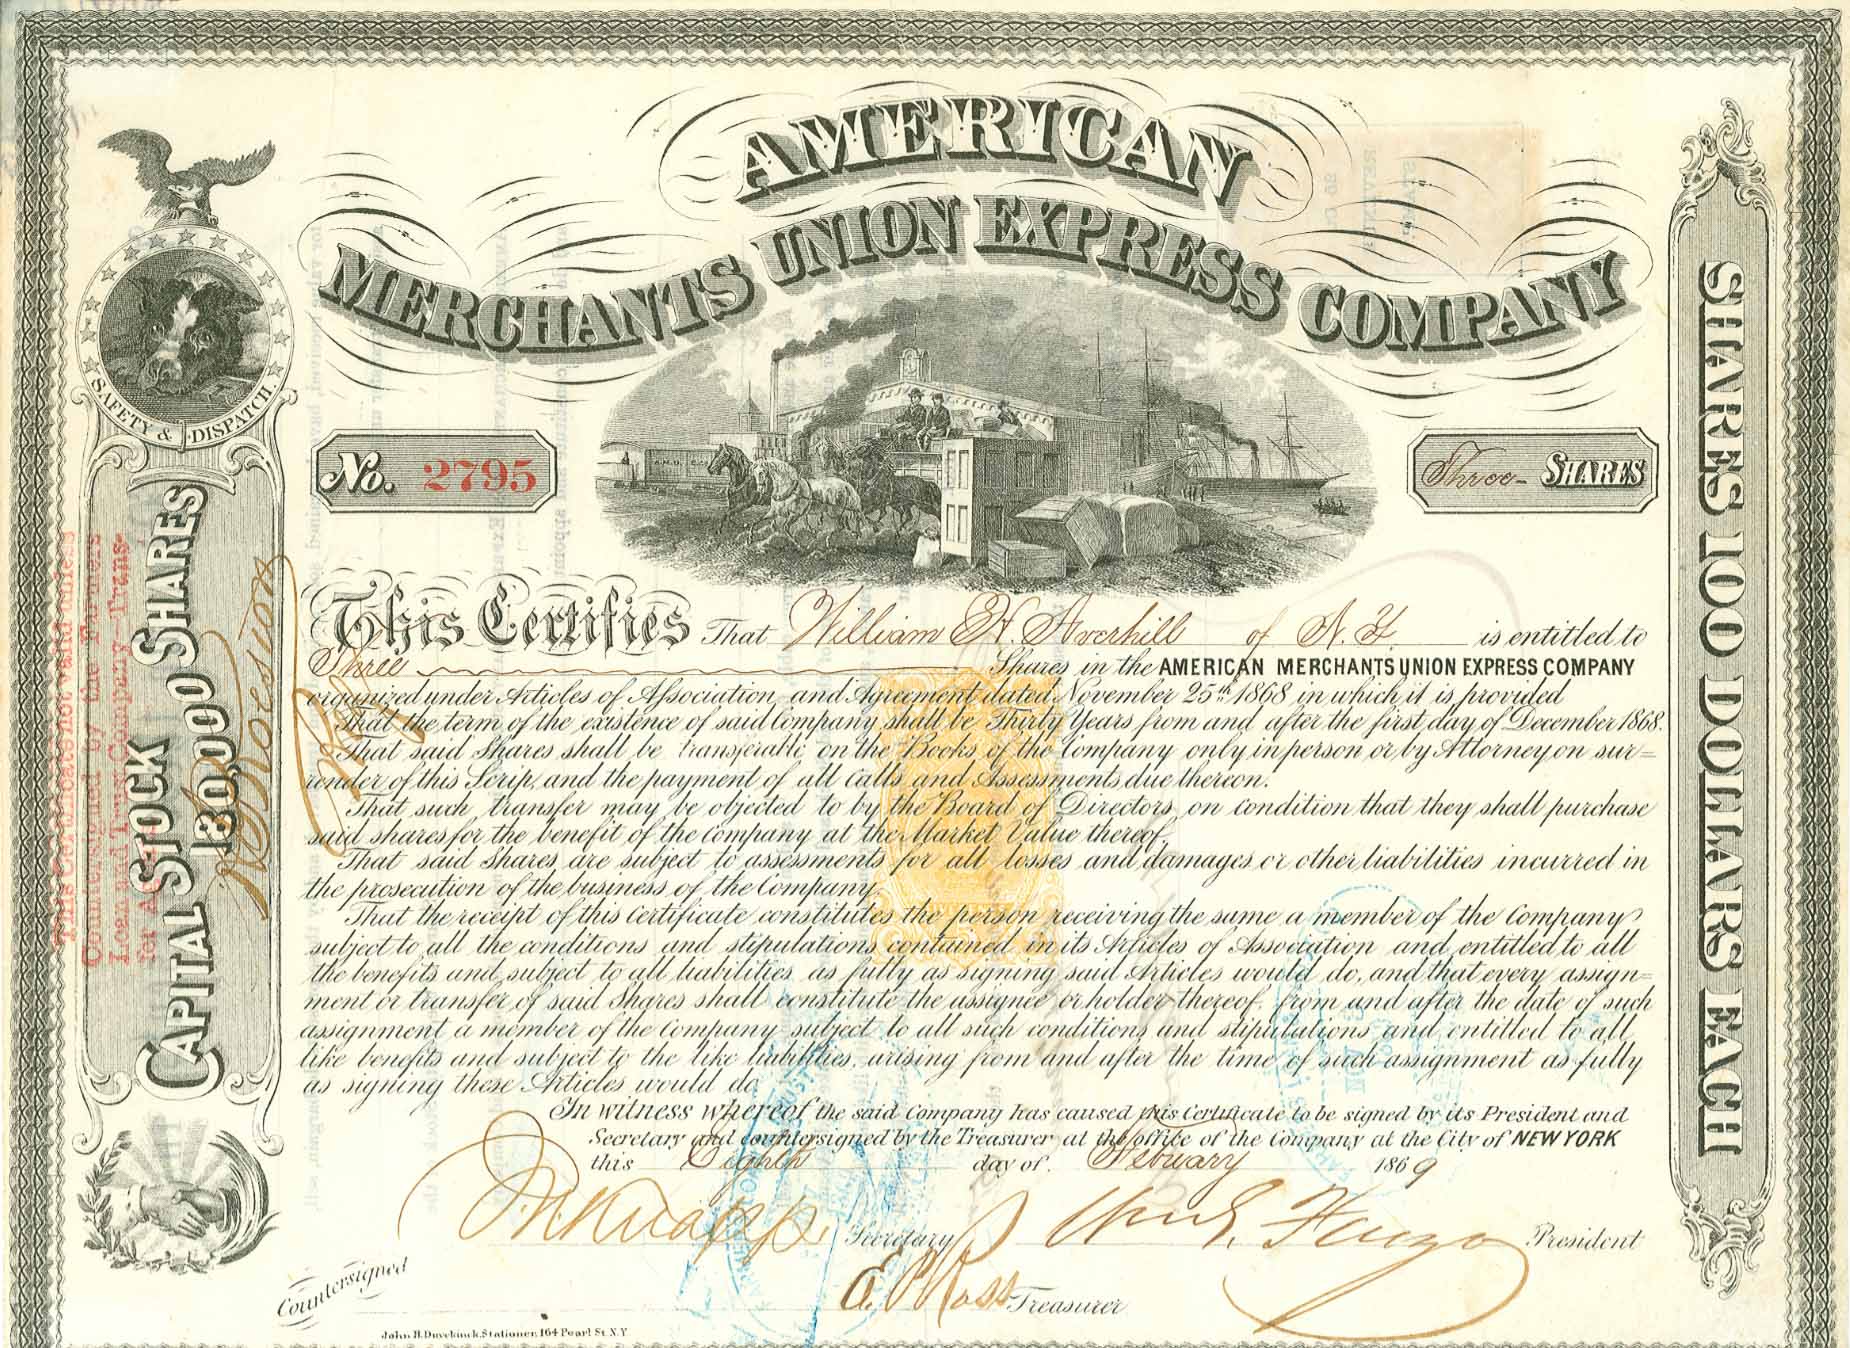 AMERICAN
MERCHANTS UNION EXPRESS COMPANY
SAFETY & DISPATCH.
No. 2795
Three - SHARES
CAPITAL STOCK
180,000 SHARES
SHARES 100 DOLLARS EACH
This Certificate not valid unless
Countersigned by the Farmers
Loan and Trust Company-Trans-
fer Ag
This Certifies That William H. Averhill of N. Y. is entitled to
Three Shares in the AMERICAN MERCHANTS UNION EXPRESS COMPANY
organized under Articles of Association and Agreement dated November 25th 1868 in which it is provided
That the term of the existence of said Company shall be Thirty Years from and after the first day of December 1868.
That said Shares shall be transferable on the Books of the Company only in person or by Attorney on sur=
render of this Scrip, and the payment of all Calls and Assessments due thereon.
That such transfer may be objected to by the Board of Directors, on condition that they shall purchase
said shares for the benefit of the Company at the Market Value thereof.
That said Shares are subject to assessments for all losses and damages or other liabilities incurred in
the prosecution of the business of the Company.
That the receipt of this Certificate constitutes the person receiving the same a member of the Company
subject to all the conditions and stipulations contained in its Articles of Association and entitled to all
the benefits and subject to all liabilities as fully as signing said Articles would do, and that every assign=
ment or transfer of said Shares shall constitute the assignee or holder thereof, from and after the date of such
assignment a member of the Company subject to all such conditions and stipulations and entitled to all
like benefits and subject to the like liabilities, arising from and after the time of such assignment as fully
as signing these Articles would do.
In witness whereof the said Company has caused this Certificate to be signed by its President and
Secretary and countersigned by the Treasurer at the office of the Company at the City of NEW YORK
this Eighth day of February 1869
J. N. Knapp Secretary
Wm G. Fargo President
Countersigned
E. P. Ross Treasurer
John H. Duyckinck, Stationer, 164 Pearl St. N.Y.